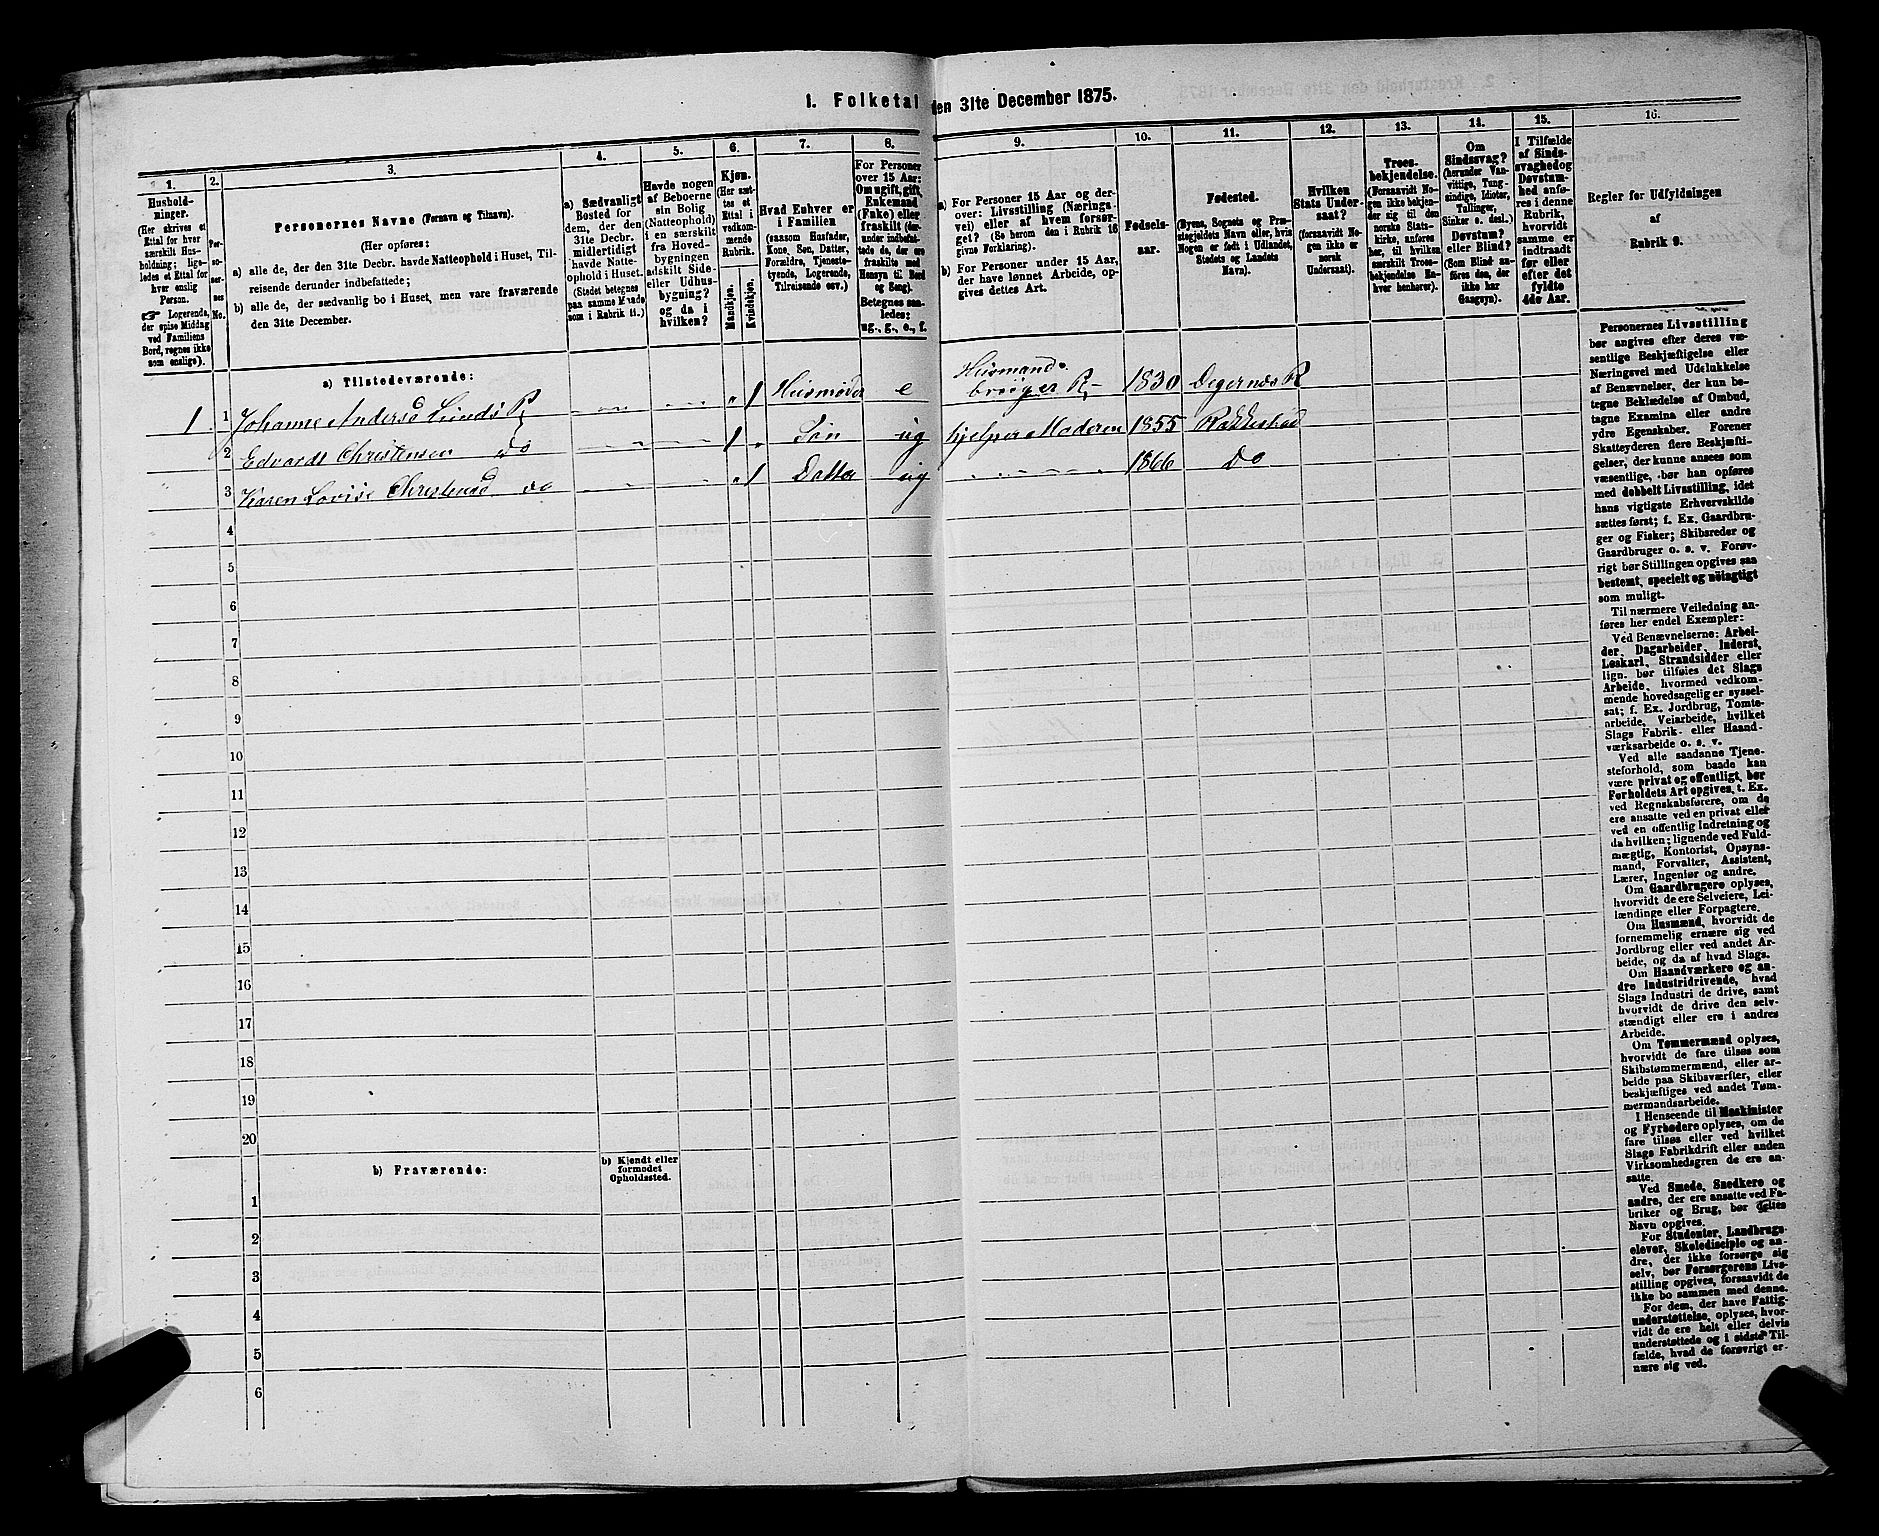 1. Folketal den 31te December 1875.
1.
Hushold-
ninger.
(Her skrives et
Ettal for hver
særskilt Hus-
holdning; lige-
ledes et Ettal for
hver enslig
Person.
☞ Logerende,
der spise Middag
ved Familiens
Bord, regnes ikke
som enslige).
2.
Per-
so-
ner-
nes
No.
3.
Personernes Navne (Fornavn og Tilnavn).
(Her opføres:
a) alle de, der den 31te Decbr. havde Natteophold i Huset, Til-
reisende derunder indbefattede;
b) alle de, der sædvanlig bo i Huset, men vare fraværende
den 31te December.
4.
a) Sædvanligt
Bosted for
dem, der den
31te Decbr.
midlertidigt
havde Natte-
ophold i Huset.
(Stedet betegnes
paa samme Maade
som i Rubrik 11.)
5.
Havde nogen
af Beboerne
sin Bolig
(Natteophold)
i en særskilt
fra Hoved-
bygningen
adskilt Side-
eller Udhus-
bygning?
og da i
hvilken?
6.
Kjøn.
(Her sæt-
tes et
Ettal i
vedkom-
mende
Rubrik.
Mandkjøn.
Kvindekjøn.
7.
Hvad Enhver er
i Familien
(saasom Husfader,
Kone, Søn, Datter,
Forældre, Tjeneste-
tyende, Logerende,
Tilreisende osv.)
8.
For Personer
over 15 Aar:
Om ugift, gift,
Enkemand
(Enke) eller
fraskilt (der-
under indbefat-
tede de, der ere
fraskilte med
Hensyn til Bord
og Seng).
Betegnes saa-
ledes:
ug., g., e., f.
9.
a) For Personer 15 Aar og der-
over: Livsstilling (Nærings-
vei) eller af hvem forsør-
get? (Se herom den i Rubrik 16
givne Forklaring).
b) For Personer under 15 Aar,
der have lønnet Arbeide, op-
gives dettes Art.
10.
Fødsels-
aar.
11.
Fødested.
(Byens, Sognets og Præ-
stegjeldets Navn eller, hvis
Nogen er født i Udlandet,
Stedets og Landets
Navn).
12.
Hvilken
Stats Under-
saat?
(forsaavidt No-
gen ikke er
norsk
Undersaat).
13.
Troes-
bekjendelse.
(Forsaavidt No-
gen ikke bekjen-
der sig til den
norske Stats-
kirke, anføres
her, til hvilken
særskilt Troes-
bekjendelse En-
hver henhører).
14.
Om
Sindssvag?
(herunder Van-
vittige, Tung-
sindige, Idioter,
Tullinger,
Sinker o. desl.)
Døvstum?
eller Blind?
(Som Blind an-
føres den, der
ikke har
Gangsyn).
15.
I Tilfælde
af Sinds-
svaghed og
Døvstum-
hed anfø-
res i denne
Rubrik,
hvorvidt
samme er
indtraadt
før eller
efter det
fyldte
4de Aar.
16.
Regler for Udfyldningen
af
Rubrik 9.
a) Tilstedeværende:
1 1 Johanne Andersd Lunds R " 1 Husmoder e Husmands- bruger R 1830 Degernæs R
2 Edvardt Christensen do 1 " Søn ug hjelper Moderen 1855 Rakkestad
3 Karen Lovise Christensd do " 1 Datter ug 1866 Do
4
5
6
7
8
9
10
11
12
13
14
15
16
17
18
19
20
b) Fraværende:
b) Kjendt eller
formodet
Opholdssted.
1
2
3
4
5
6
Personernes Livsstilling
bør angives efter deres væ-
sentlige Beskjæftigelse eller
Næringsvei med Udelukkelse
af Benævnelser, der kun be-
tegne Beklædelse af Ombud,
tagne Examina eller andre
ydre Egenskaber. Forener
Skatteyderen flere Beskjæfti-
gelser, der kunne ansees som
væsentlige, bør han opføres
med dobbelt Livsstilling, idet
hans vigtigste Erhvervskilde
sættes først; f. Ex. Gaardbru-
ger og Fisker; Skibsreder og
Gaardbruger o. s. v. Forøv-
rigt bør Stillingen opgives saa
bestemt, specielt og nöiagtigt
som muligt.
Til nærmere Veiledning an-
føres her endel Exempler:
Ved Benævnelserne: Arbei-
der, Dagarbeider, Inderst,
Løskarl, Strandsidder eller
lign. bør tilføies det Slags
Arbeide, hvormed vedkom-
mende hovedsagelig er syssel-
sat; f. Ex. Jordbrug, Tomte-
arbeide, Veiarbeide, hvilket
Slags Fabrik- eller Haand-
værksarbeide o. s. v.
Ved alle saadanne Tjene-
steforhold, som baade kan
være privat og offentligt, bør
Forholdets Art opgives, t. Ex.
ved Regnskabsførere, om de
ere ansatte ved en privat eller
ved en offentlig Indretning og
da hvilken; lignende ved Fuld-
mægtig, Kontorist, Opsyns-
mand, Forvalter, Assistent,
Lærer, Ingeniør og andre.
Om Gaardbrugere oplyses,
hvorvidt de ere Selveiere, Lei-
lændinge eller Forpagtere.
Om Husmænd, hvorvidt de
fornemmelig ernære sig ved
Jordbrug eller ved andet Ar-
beide, og da af hvad Slags.
Om Haandværkere og an-
dre Industridrivende, hvad
Slags Industri de drive, samt
hvorvidt de drive den selv-
stændigt eller ere i andres
Arbeide.
Om Tømmermænd oplyses,
hvorvidt de fare tilsøs som
Skibstømmermænd, eller ar-
beide paa Skibsværfter, eller
beskjæftiges ved andet Tøm-
mermandsarbeide.
I Henseende til Maskinister
og Fyrbødere oplyses, om de
fare tilsøs eller ved hvilket
Slags Fabrikdrift eller anden
Virksomhedsgren de ere an-
satte.
Ved Smede, Snedkere og
andre, der ere ansatte ved Fa-
briker og Brug, bør dettes
Navn opgives.
For Studenter, Landbrugs-
elever, Skoledisciple og an-
dre, der ikke forsørge sig
selv, bør Forsørgerens Livs-
stilling opgives, forsaavidt de
ikke bo sammen med denne.
For dem, der have Fattig-
understøttelse, oplyses, hvor-
vidt de ere helt eller delvis
understøttede og i sidste Til-
fælde, hvad de forøvrigt er-
nære sig ved.